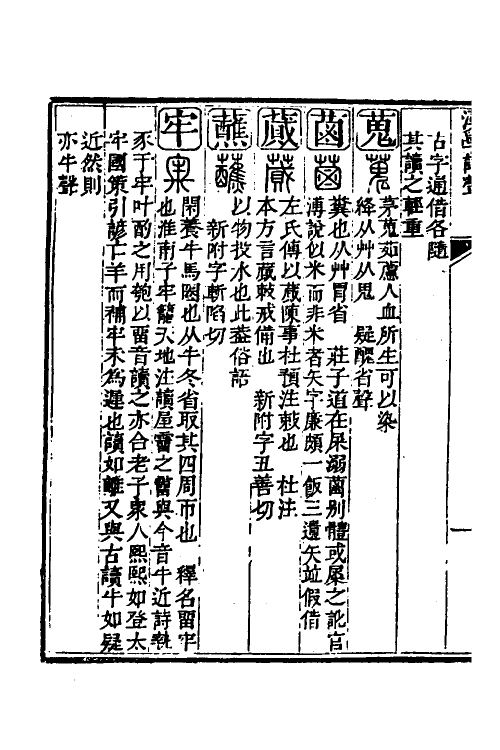 古字通借各隨
其讀之輕重
蒐 茅蒐茹藘人血所生可以染
絳从艸从鬼 疑醜省聲
𦳊 糞也从艸胃省 莊子道在屎溺𦳊別體或屎之訛官
溥說似米而非米者矢字廉頗一飯三遺矢竝假借
蕆 左氏傳以蕆陳事杜預注敕也 杜注
本方言蕆敕戒備也 新附字丑善切
蘸 以物投水也此葢俗語
新附字斬陷切
牢 閑養牛馬圈也从牛冬省取其四周帀也 釋名霤牢
也淮南子牢籠天地注讀屋霤之霤與今音牛近詩執
豕于牢叶酌之用匏以畱音讀之亦合老子衆人熙熙如登太
牢國策引諺亡羊而補牢未為遲也讀如雝又與古讀牛如疑
近然則
亦牛聲